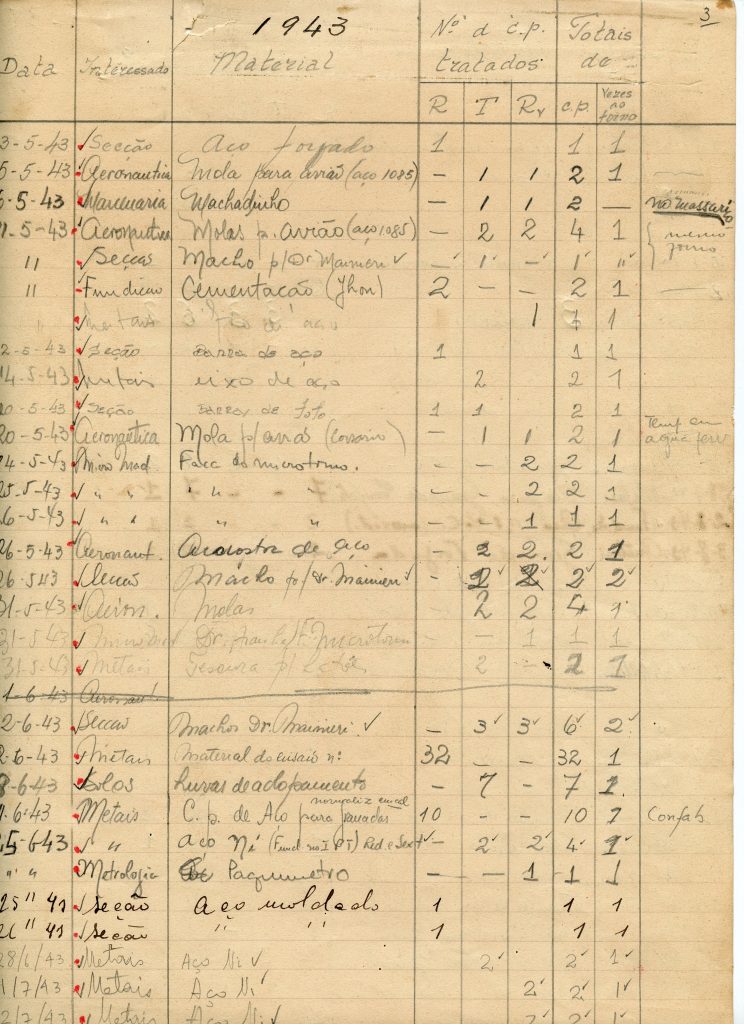 3
1943
Nº d c.p. tratados
Totais de
Data Interessado Material R T Rv c.p. Vezes ao forno
3-5-43 Secção Aço forjado 1 1 1
5-5-43 Aeronautica Mola para avião (aço 1085) — 1 1 2 1
5-43 Marcenaria Machadinho — 1 1 2 — no
11-5-43 Aeronautica Molas p. avião (aço 1085) — 2 2 4 1 mesmo forno
" Secção Macho p/ Dr Mainieri — 1 — 1 "
" Fundicao Cementação (Jhon) 2 — — 2 1
" Metais aço 1 1 1
2-5-43 Seção Barra de aço 1 1 1
14-5-43 Metais eixo de aço 2 2 1
20-5-43 Seção Barras de 1 1 2 1
20-5-43 Aeronautica Mola p/ avião — 1 1 2 1 Temp em agua ferv
24-5-43 Micro Mad. Faca do microtomo. — — 2 2 1
25-5-43 " " " " — — 2 2 1
26-5-43 " " " " — — 1 1 1
26-5-43 Aeronaut. Amostra de aço — 2 2 2 1
26-5-43 Secção Macho p/ Dr. Mainieri — 2 2 2
31-5-43 Aeron. Molas 2 2 4 1
31-5-43 Dr. Microtomo — — 1 1 1
31-5-43 Metais Tesoura p/ 2 — 2 1
1-6-43 Aeronaut.
2-6-43 Secção Machos Dr. Mainieri — 3 3 6 2
2-6-43 Metais Material do ensaio nº 32 — — 32 1
8-6-43 Solos Luvas de aclopamento — 7 — 7 1
normaliz
6-43 Metais C. p. de Aço para 10 — — 10 1 Confab.
25-6-43 " " aço Ni (Fund no I P T) Red. e Sext — 2 2 4 1
" " Metrologia Paquimetro — — 1 1 1
25 " 43 Secção Aço moldado 1 1 1
26 " 43 Secção " " 1 1 1
28/6/43 Metais Aço Ni 2 2 1
1/7/43 Metais Aço Ni 2 2 1
2/7/43 Metais Aço Ni 2 2 1